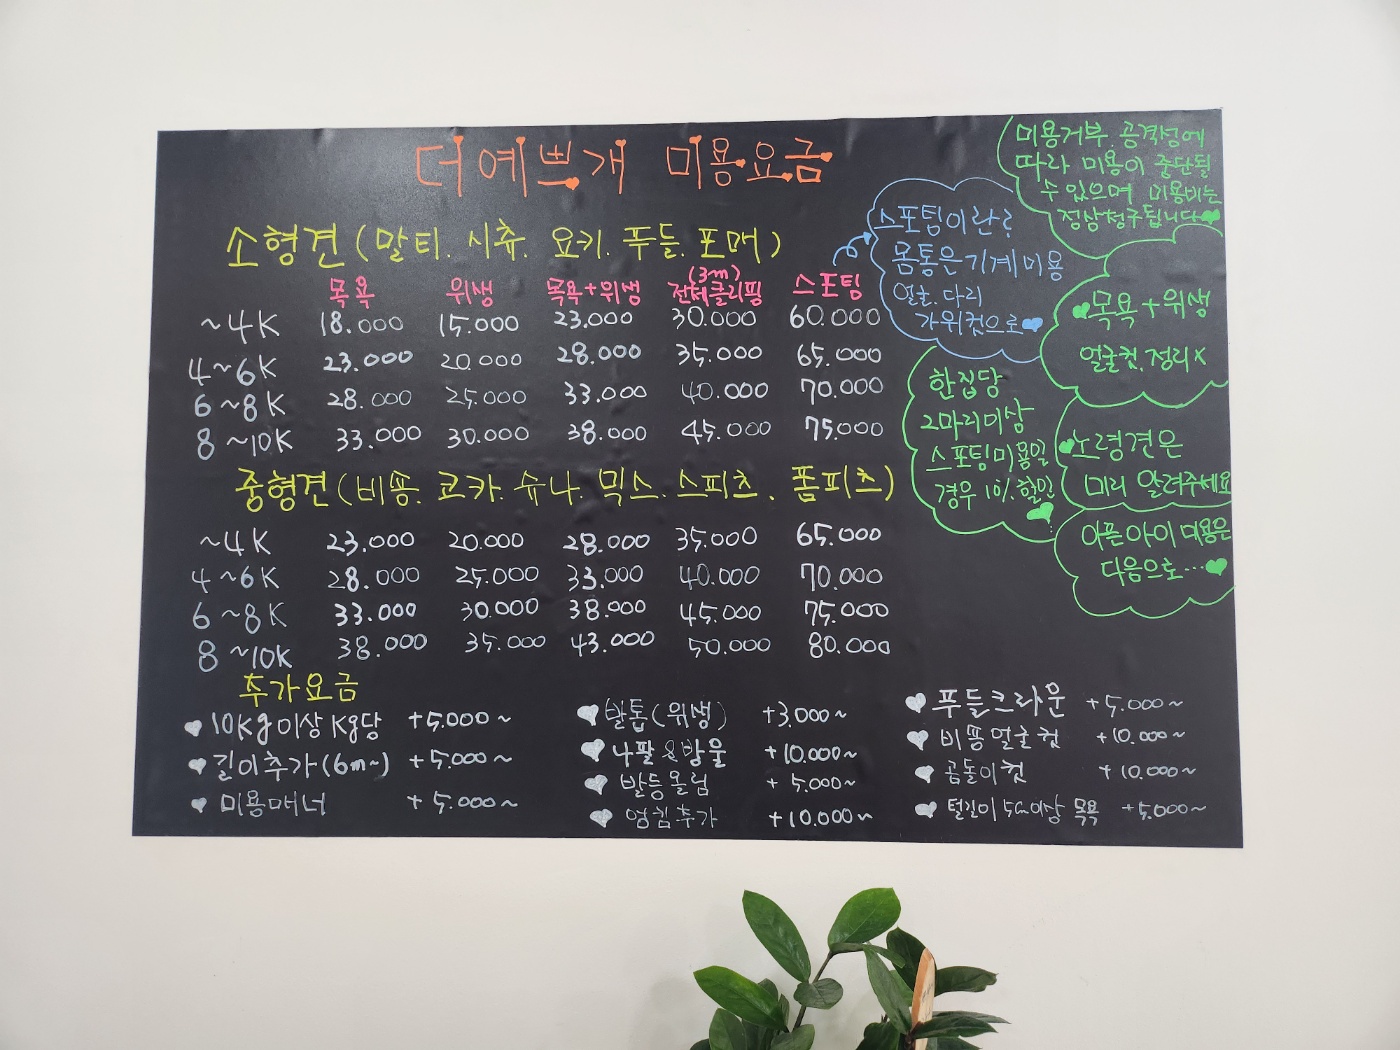 더예쁘개 미용요금
소형견(말티.시츄.요키.푸들.포매)
목욕 위생 목욕+위생 (3m)전체클리핑 스포팅
~4K 18.000 15.000 23.000 30.000 60.000
4~6K 23.000 20.000 28.000 35.000 65.000
6~8K 28.000 25.000 33.000 40.000 70.000
8~10K 33.000 30.000 38.000 45.000 75.000
중형견(비숑.코카.슈나.믹스.스피츠.폼피츠)
~4K 23.000 20.000 28.000 35.000 65.000
4~6K 28.000 25.000 33.000 40.000 70.000
6~8K 33.000 30.000 38.000 45.000 75.000
8~10K 38.000 35.000 43.000 50.000 80.000
추가요금
10Kg이상 Kg당 +5.000~
길이추가(6m~) +5.000~
미용매너 +5.000~
발톱(위생) +3.000~
나팔&방울 +10.000~
발등올림 +5.000~
엉킴추가 +10.000~
푸들크라운 +5.000~
비숑얼굴컷 +10.000~
곰돌이컷 +10.000~
털길이 5cm이상 목욕 +5.000~
스포팅이란?
몸통은기계미용
얼굴.다리
가위컷으로
미용거부.공격성에
따라 미용이 중단될
수있으며 미용비는
정상청구됩니다
목욕+위생
얼굴컷.정리X
한집당
2마리이상
스포팅미용일
경우 10%할인
노령견은
미리 알려주세요
아픈아이 미용은
다음으로…